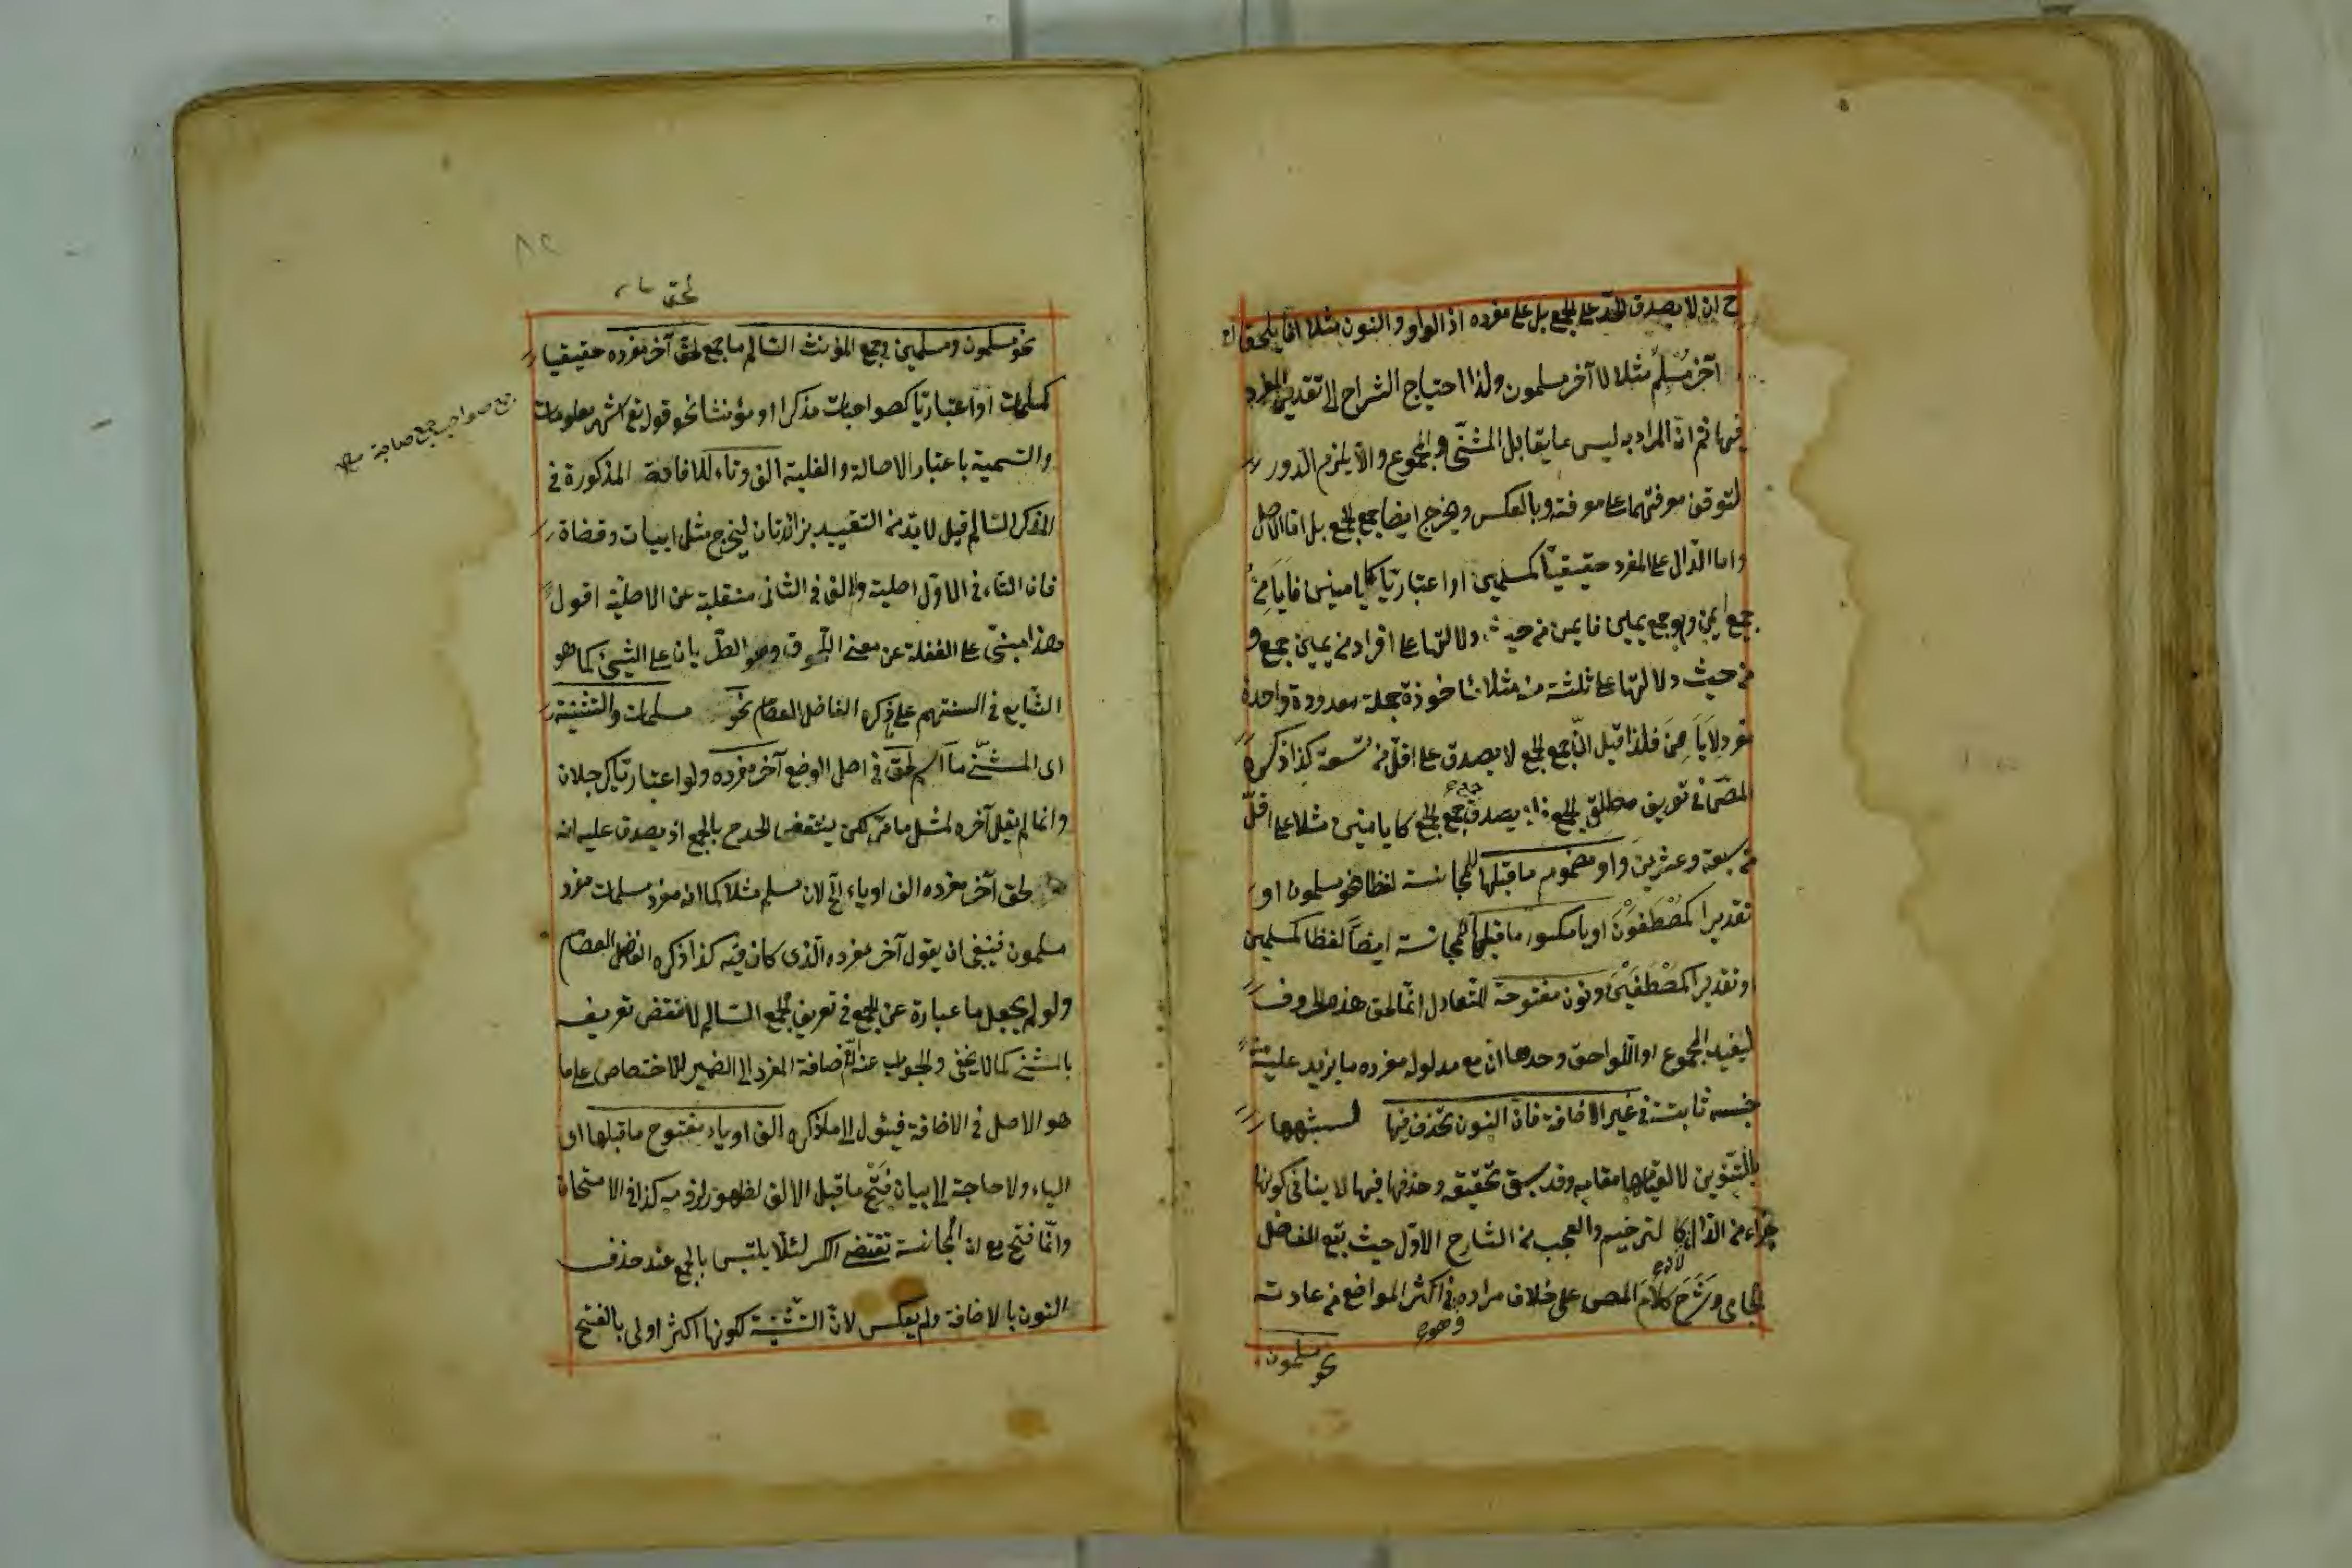 ح ان لا يصدق الحد على الجمع بل على مفرده اذ الواو والنون مثلا انما يلحقان
آخر مُسْلِمٌ مثلا لا آخر مسلمون ولذا احتياج الشراح الى تقدير المفرد
فيها ثم انّ المراد به ليس ما يقابل المثنّى والمجموع والّا يلزم الدّور
لتوقف معرفتهما على معرفته وبالعكس ويخرج ايضا جمع الجمع بل امّا الاصل
واما الدّال على المفرد حقيقيّا كمسلمين او اعتباريّا كايامنين فايَامِنُ
جمع ايمن وهو جمع يمين فايمن من حيث دلالتها على افراد من يمين جمع و
من حيث دلالتها على ثلثة منه مثلا مأخوذة جملة معدودة واحدة
مفرد لايَامِنَ فلذا قيل انّ جمع الجمع لا يصدق على اقلّ من تسعة كذا ذكره
المصّ في تعريف مطلق الجمع يصدق جمع الجمع كايامنين مثلا على اقلّ
من سبعة وعشرين واو مضموم ما قبلها للمجانسة لفظا نحو مسلمون او
تقديرا كمُصْطَفَوْنَ او ياء مكسور ما قبلها للمجانسة ايضاً لفظا كمسلمين
او تقديرا كمصْطَفَيْنَ ونون مفتوحة للتعادل انّما لحق هذه الحروف
ليفيد المجموع او اللّواحق وحدها انّ مع مدلول مفرده ما يزيد عليه من
جنسه ثابتة في غير الاضافة فانّ النون تحذف فيها لشبهها
بالتنوين لا لقيامها مقامه وقد سبق تحقيقه وحذفها فيها لا ينافي كونها
جزاء من الدّال كا لترخيم والعجب من الشارح الاوّل حيث تبع الفاضل
الجامى وشَرَحَ كلامَ المصى على خلاف مراده في اكثر المواضع من عادته
نحو مسلمون
لحق
نحو مسلمون ومسلمين وجمع المؤنث السّالم ما جمع لحق آخر مفرده حقيقيا
كمسلمات او اعتباريّا كصواحبات مذكرا او مؤنثا نحو قوله تع اشهر معلومات
جمع صواحب جمع صاحبة
والتسمية باعتبار الاصالة والغلبة الف وتاء للافادة المذكورة في
المذكر السّالم قيل لا بدّ من التقييد بزائدتان ليخرج مثل ابيات وقضاة
فان التاء في الاوّل اصلية والالف في الثانى منقلبة عن الاصليّة اقول
وهذا مبنىّ على الغفلة عن معنى اللّحوق وهو الطّريان على الشيئ كما هو
الشّايع في السنتهم على ما ذكره الفاضل العصام نحو مسلمات والتثنية
اى المثنّى ما اسم لحق في اصل الوضع آخر مفرده ولو اعتباريّا كرجلان
وانما لم يقل آخره لمثل ما مرّ لكن ينتقض الحدّ ح بالجمع اذ يصدق عليه انه
لحق آخر مفرده الف او ياء الخ لان مسلم مثلا كما انه مفرد مسلمات مفرد
مسلمون فينبغى ان يقول آخر مفرده الّذى كان فيه كذا ذكره الفاضل العصام
ولو لم يجعل ما عبارة عن الجمع في تعريف الجمع السّالم لانتقض تعريفه
بالمثنّى كما لا يخفى والجواب عنه انّ اضافة المفرد الى الضمير للاختصاص على ما
هو الاصل في الاضافة فيئول الى ما ذكره الف او ياء مفتوح ما قبلها اى
الياء ولا حاجة الى بيان فَتْحِ ما قبل الالف لظهور لزومه كذا في الامتحان
وانّما فتح مع ان المجانسة تقتضى الكسر لئلّا يلتبس بالجمع عند حذف
النون بالاضافة ولم يعكس لانّ التّثنية لكونها اكثر اولى بالفتح